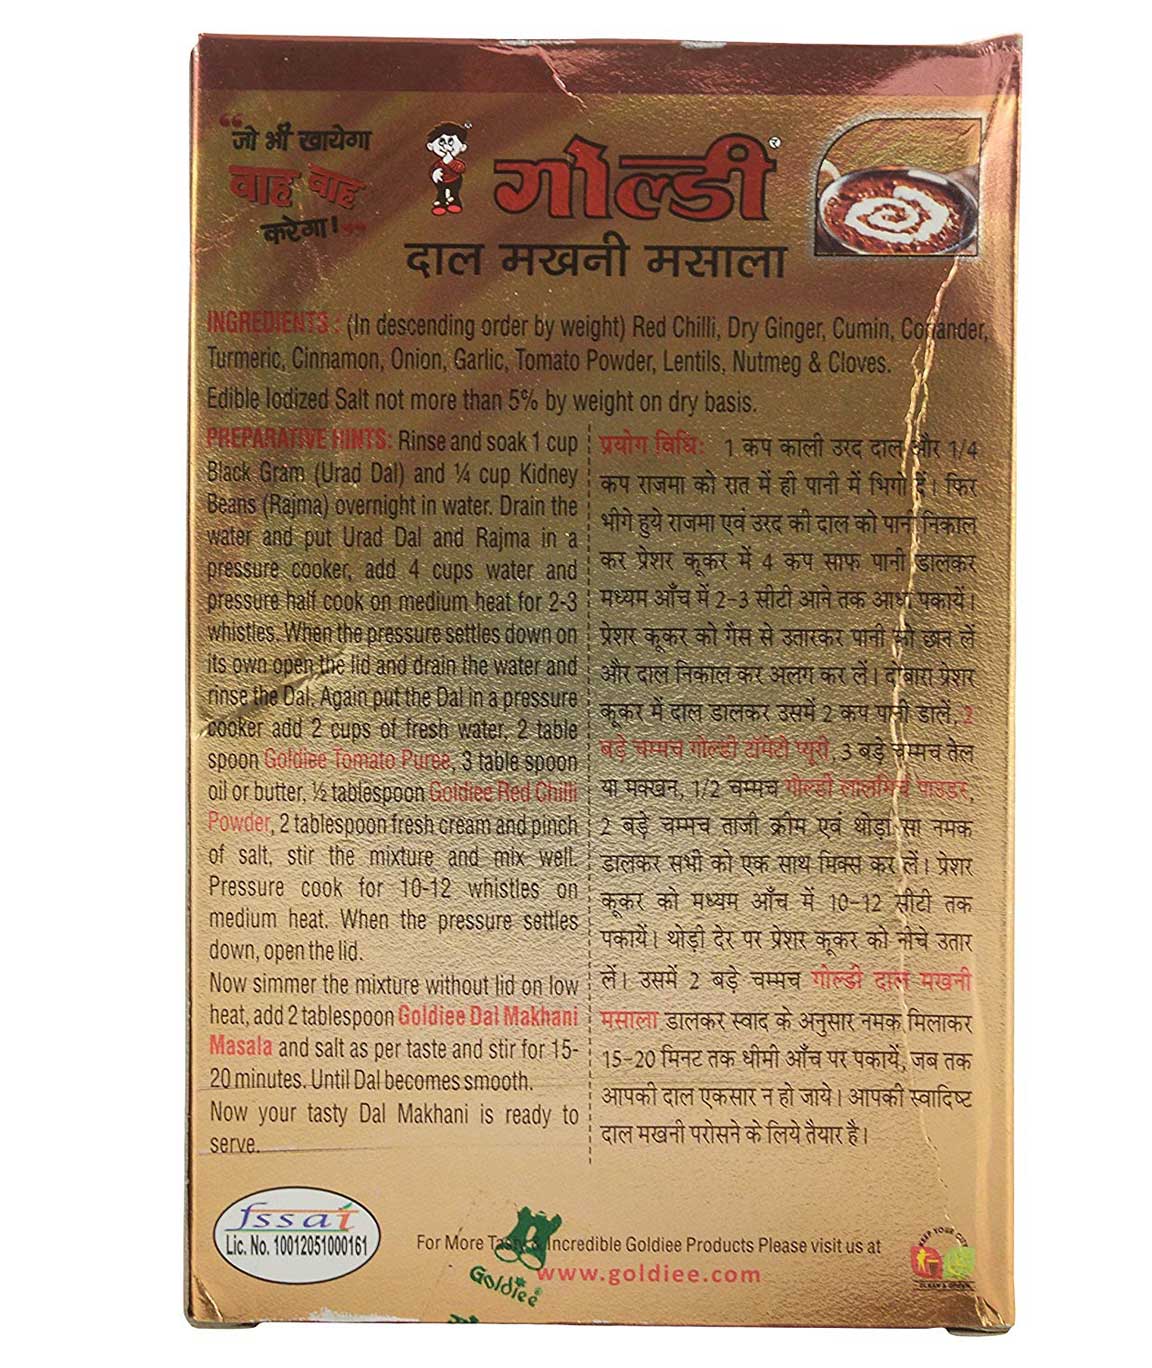 “जो भी खायेगा
वाह वाह
करेगा!”
गोल्डी®
दाल मखनी मसाला
INGREDIENTS : (In descending order by weight) Red Chilli, Dry Ginger, Cumin, Coriander,
Turmeric, Cinnamon, Onion, Garlic, Tomato Powder, Lentils, Nutmeg & Cloves.
Edible Iodized Salt not more than 5% by weight on dry basis.
PREPARATIVE HINTS: Rinse and soak 1 cup
Black Gram (Urad Dal) and ¼ cup Kidney
Beans (Rajma) overnight in water. Drain the
water and put Urad Dal and Rajma in a
pressure cooker, add 4 cups water and
pressure half cook on medium heat for 2-3
whistles. When the pressure settles down on
its own open the lid and drain the water and
rinse the Dal. Again put the Dal in a pressure
cooker add 2 cups of fresh water, 2 table
spoon Goldiee Tomato Puree, 3 table spoon
oil or butter, ½ tablespoon Goldiee Red Chilli
Powder, 2 tablespoon fresh cream and pinch
of salt, stir the mixture and mix well.
Pressure cook for 10-12 whistles on
medium heat. When the pressure settles
down, open the lid.
Now simmer the mixture without lid on low
heat, add 2 tablespoon Goldiee Dal Makhani
Masala and salt as per taste and stir for 15-
20 minutes. Until Dal becomes smooth.
Now your tasty Dal Makhani is ready to
serve.
प्रयोग विधि: 1 कप काली उरद दाल और 1/4
कप राजमा को रात में ही पानी में भिगो दें। फिर
भीगे हुये राजमा एवं उरद की दाल को पानी निकाल
कर प्रेशर कूकर में 4 कप साफ पानी डालकर
मध्यम आँच में 2-3 सीटी आने तक आधा पकायें।
प्रेशर कूकर को गैस से उतारकर पानी को छान लें
और दाल निकाल कर अलग कर लें। दोबारा प्रेशर
कूकर में दाल डालकर उसमें 2 कप पानी डालें, 2
बड़े चम्मच गोल्डी टॉमेटो प्यूरी, 3 बड़े चम्मच तेल
या मक्खन, 1/2 चम्मच गोल्डी लालमिर्च पाउडर,
2 बड़े चम्मच ताजी क्रीम एवं थोड़ा सा नमक
डालकर सभी को एक साथ मिक्स कर लें। प्रेशर
कूकर को मध्यम आँच में 10-12 सीटी तक
पकायें। थोड़ी देर पर प्रेशर कूकर को नीचे उतार
लें। उसमें 2 बड़े चम्मच गोल्डी दाल मखनी
मसाला डालकर स्वाद के अनुसार नमक मिलाकर
15-20 मिनट तक धीमी आँच पर पकायें, जब तक
आपकी दाल एकसार न हो जाये। आपकी स्वादिष्ट
दाल मखनी परोसने के लिये तैयार है।
fssai
Lic. No. 10012051000161
For More Tasty & Incredible Goldiee Products Please visit us at
www.goldiee.com
Goldiee
KEEP YOUR CITY
CLEAN & GREEN